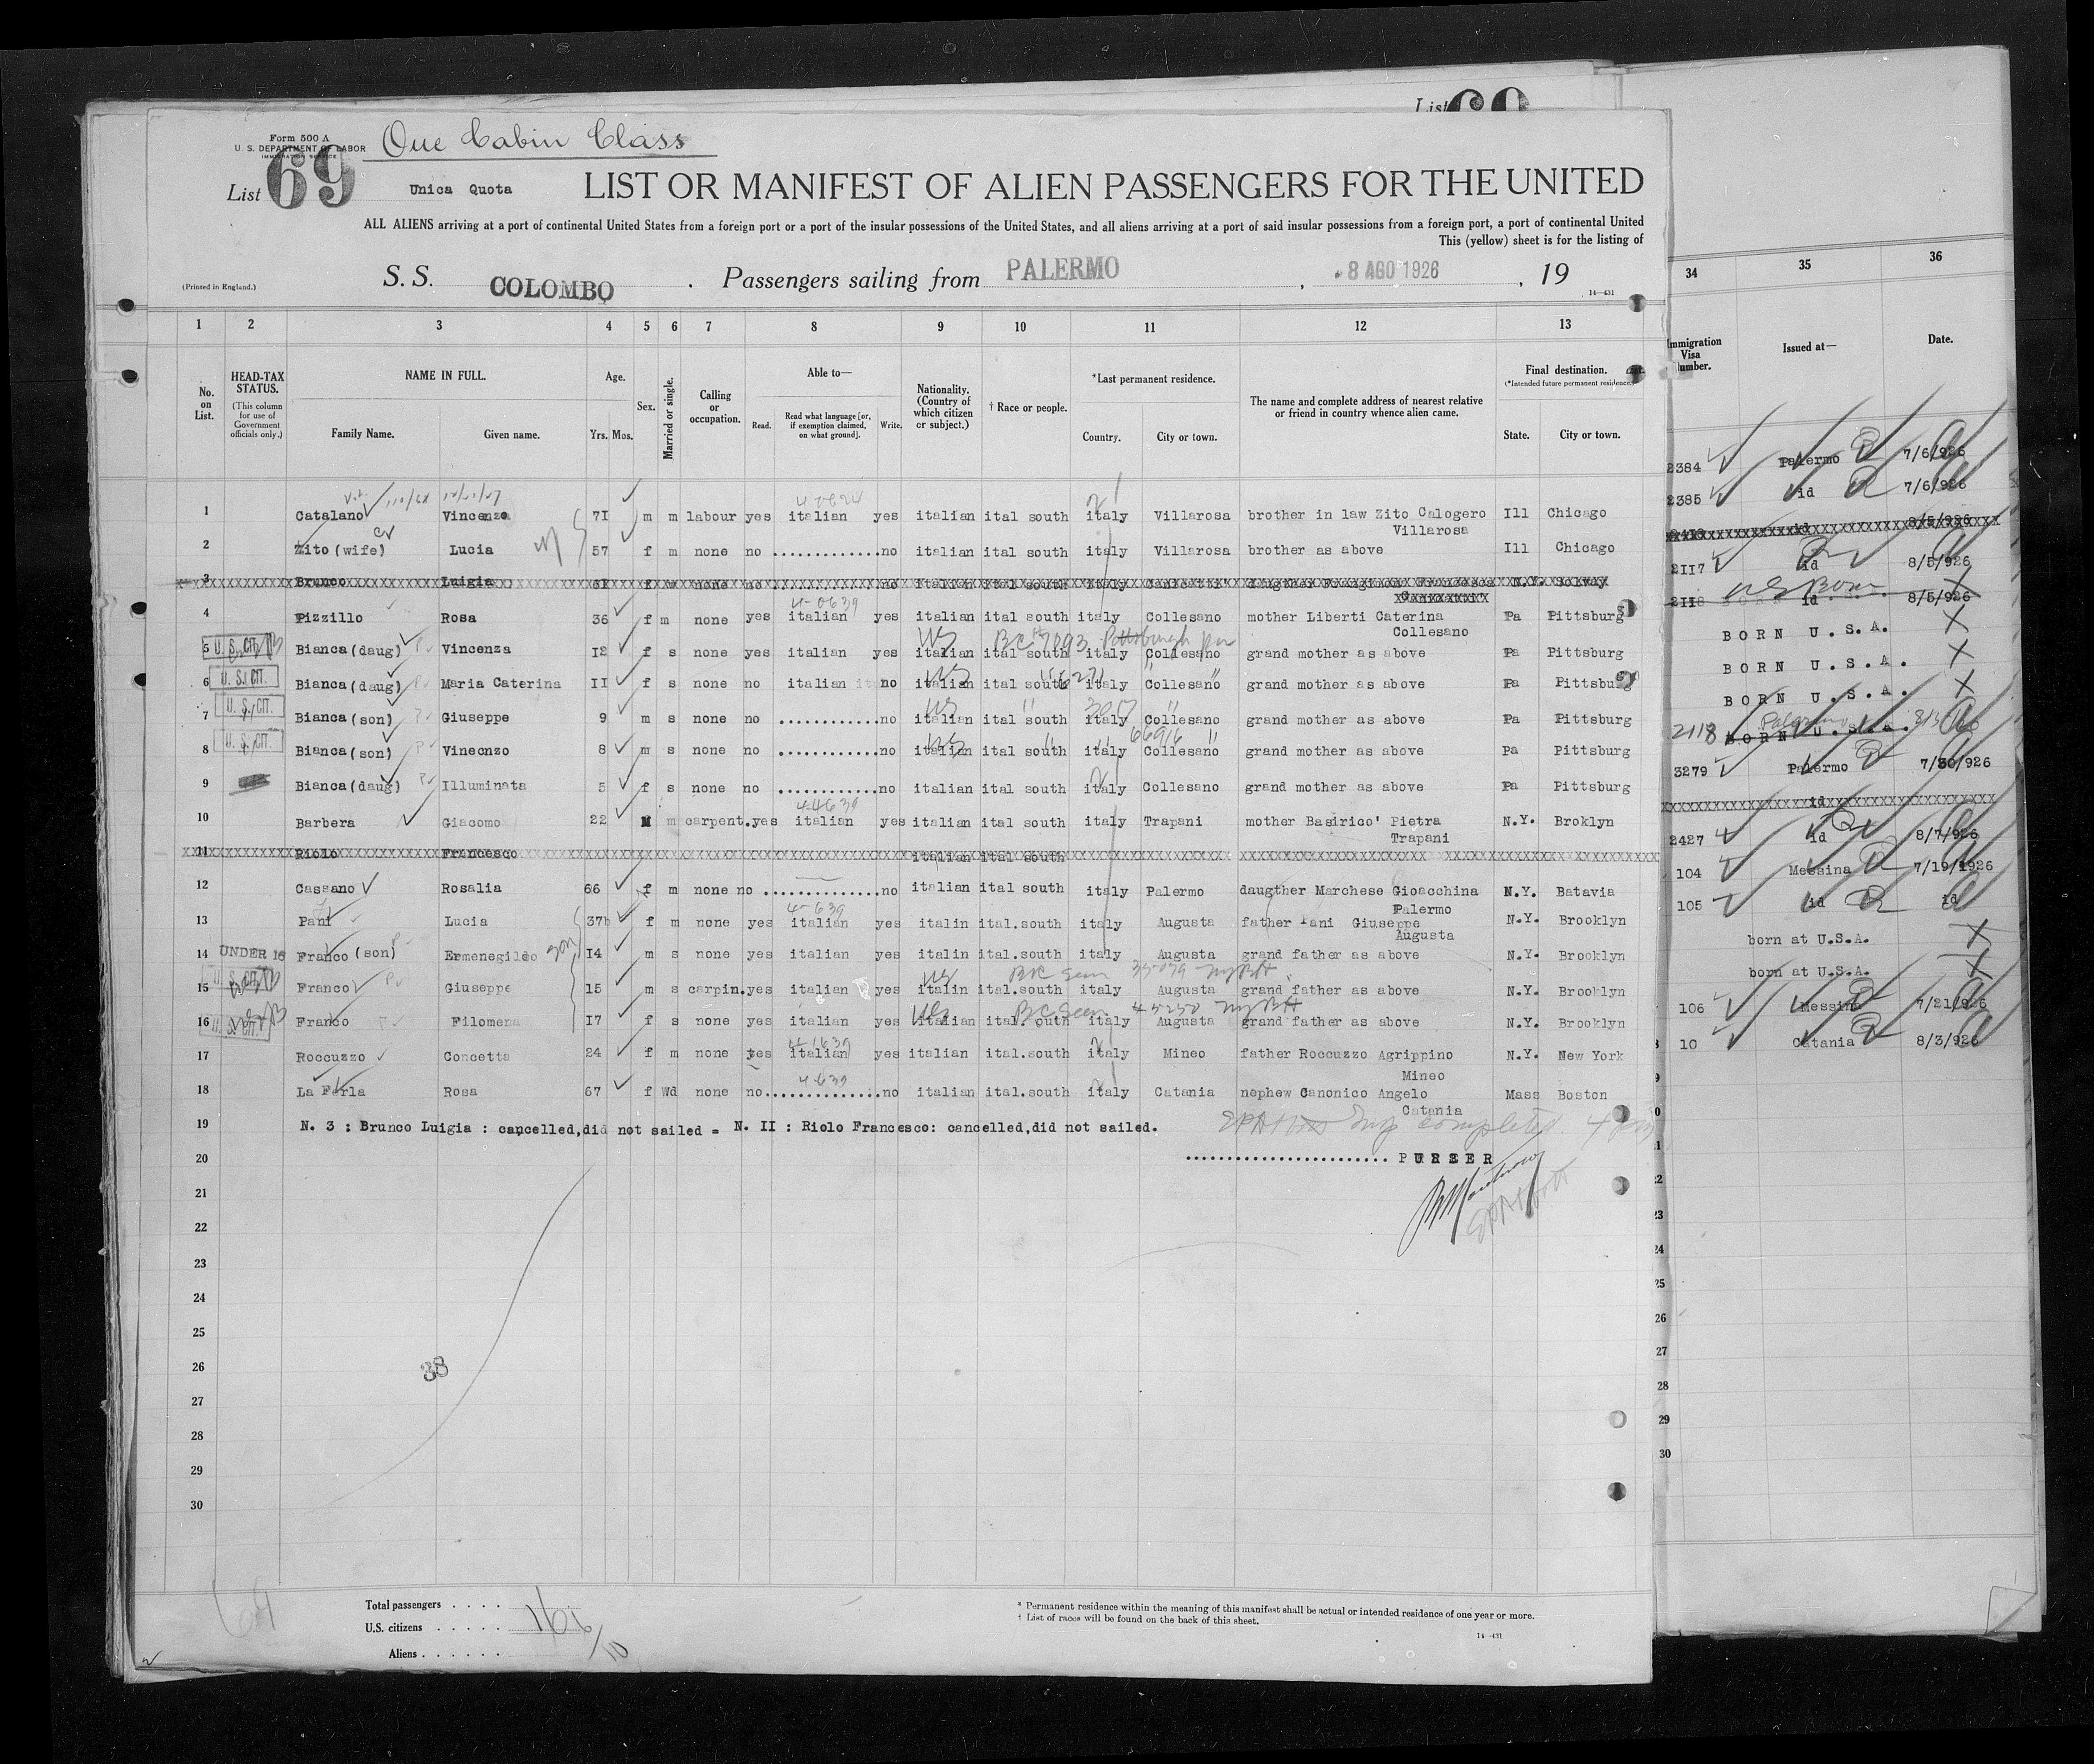 List 69
Form 500 A
U. S. DEPARTMENT OF LABOR
IMMIGRATION SERVICE
One Cabin Class
List 69 Unica Quota LIST OR MANIFEST OF ALIEN PASSENGERS FOR THE UNITED
ALL ALIENS arriving at a port of continental United States from a foreign port or a port of the insular possessions of the United States, and all aliens arriving at a port of said insular possessions from a foreign port, a port of continental United
This (yellow) sheet is for the listing of
(Printed in England.) S. S. COLOMBO . Passengers sailing from PALERMO , 8 AGO 1926 , 19
14—431
1 2 3 4 5 6 7 8 9 10 11 12 13 34 35 36
No. on List.
HEAD-TAX STATUS.
(This column for use of Government officials only.)
NAME IN FULL.
Family Name. Given name.
Age.
Yrs. Mos.
Sex.
Married or single.
Calling or occupation.
Able to—
Read. Read what language [or, if exemption claimed, on what ground]. Write.
Nationality. (Country of which citizen or subject.)
† Race or people.
*Last permanent residence.
Country. City or town.
The name and complete address of nearest relative or friend in country whence alien came.
Final destination.
(*Intended future permanent residence.)
State. City or town.
Immigration Visa Number.
Issued at—
Date.
1 Catalano Vincenzo 7I m m labour yes italian yes italian ital south italy Villarosa brother in law Zito Calogero Ill Chicago
Villarosa
2 Zito (wife) Lucia 57 f m none no .............no italian ital south italy Villarosa brother as above Ill Chicago
3 Brunco Luigia 61 f none no no italian ital south italy N.Y. Solvay
4 Pizzillo Rosa 36 f m none yes italian yes italian ital south italy Collesano mother Liberti Caterina Pa Pittsburg
Collesano
5 U. S. CIT. Bianca (daug) Vincenza I2 f s none yes italian yes italian ital south italy Collesano grand mother as above Pa Pittsburg
6 U. S. CIT. Bianca (daug) Maria Caterina II f s none no italian no italian ital south italy Collesano grand mother as above Pa Pittsburg
7 U. S. CIT. Bianca (son) Giuseppe 9 m s none no ............no italian ital south italy Collesano grand mother as above Pa Pittsburg
8 U. S. CIT. Bianca (son) Vinecnzo 8 m s none no ............no italian ital south italy Collesano grand mother as above Pa Pittsburg
9 Bianca (daug) Illuminata 5 f s none no ............no italian ital south italy Collesano grand mother as above Pa Pittsburg
10 Barbera Giacomo 22 M m carpent. yes italian yes italian ital south italy Trapani mother Basirico' Pietra N.Y. Broklyn
Trapani
11 Riolo Francesco italian ital south
12 Cassano Rosalia 66 f m none no ..............no italian ital south italy Palermo daugther Marchese Gioacchina N.Y. Batavia
Palermo
13 Pani Lucia 37 f m none yes italian yes italin ital.south italy Augusta father Pani Giuseppe N.Y. Brooklyn
Augusta
14 UNDER 16 Franco (son) Ermenegildo son I4 m s none yes italian yes italin ital.south italy Augusta grand father as above N.Y. Brooklyn
15 U. S. CIT. Franco Giuseppe 15 m s carpin. yes italian yes italin ital.south italy Augusta grand father as above N.Y. Brooklyn
16 U. S. CIT. Franco Filomena I7 f s none yes italian yes italian ital. south italy Augusta grand father as above N.Y. Brooklyn
17 Roccuzzo Concetta 24 f m none yes italian yes italian ital.south italy Mineo father Roccuzzo Agrippino N.Y. New York
Mineo
18 La Ferla Rosa 67 f Wd none no..............no italian ital.south italy Catania nephew Canonico Angelo Mass Boston
Catania
19 N. 3 : Brunco Luigia : cancelled,did not sailed = N. II : Riolo Francesco: cancelled,did not sailed.
20 ........................ PURSER
21
22
23
24
25
26
27
28
29
30
38
2384 Palermo 7/6/926
2385 id 7/6/926
id 8/5/926
2II7 id 8/5/926
2II8 US Born id 8/5/926
BORN U.S.A. X
BORN U.S.A. X
BORN U.S.A. X
2118 Palermo BORN U.S.A.
3279 Palermo 7/30/926
id
2427 id 8/7/926
104 Messina 7/19/1926
105 id id
born at U.S.A. X
born at U.S.A. X
106 Messina 7/21/926
10 Catania 8/3/926
23
24
25
26
27
28
29
30
Total passengers . . . .
U.S. citizens . . . . .
Aliens . . . . . .
* Permanent residence within the meaning of this manifest shall be actual or intended residence of one year or more.
† List of races will be found on the back of this sheet.
14—431